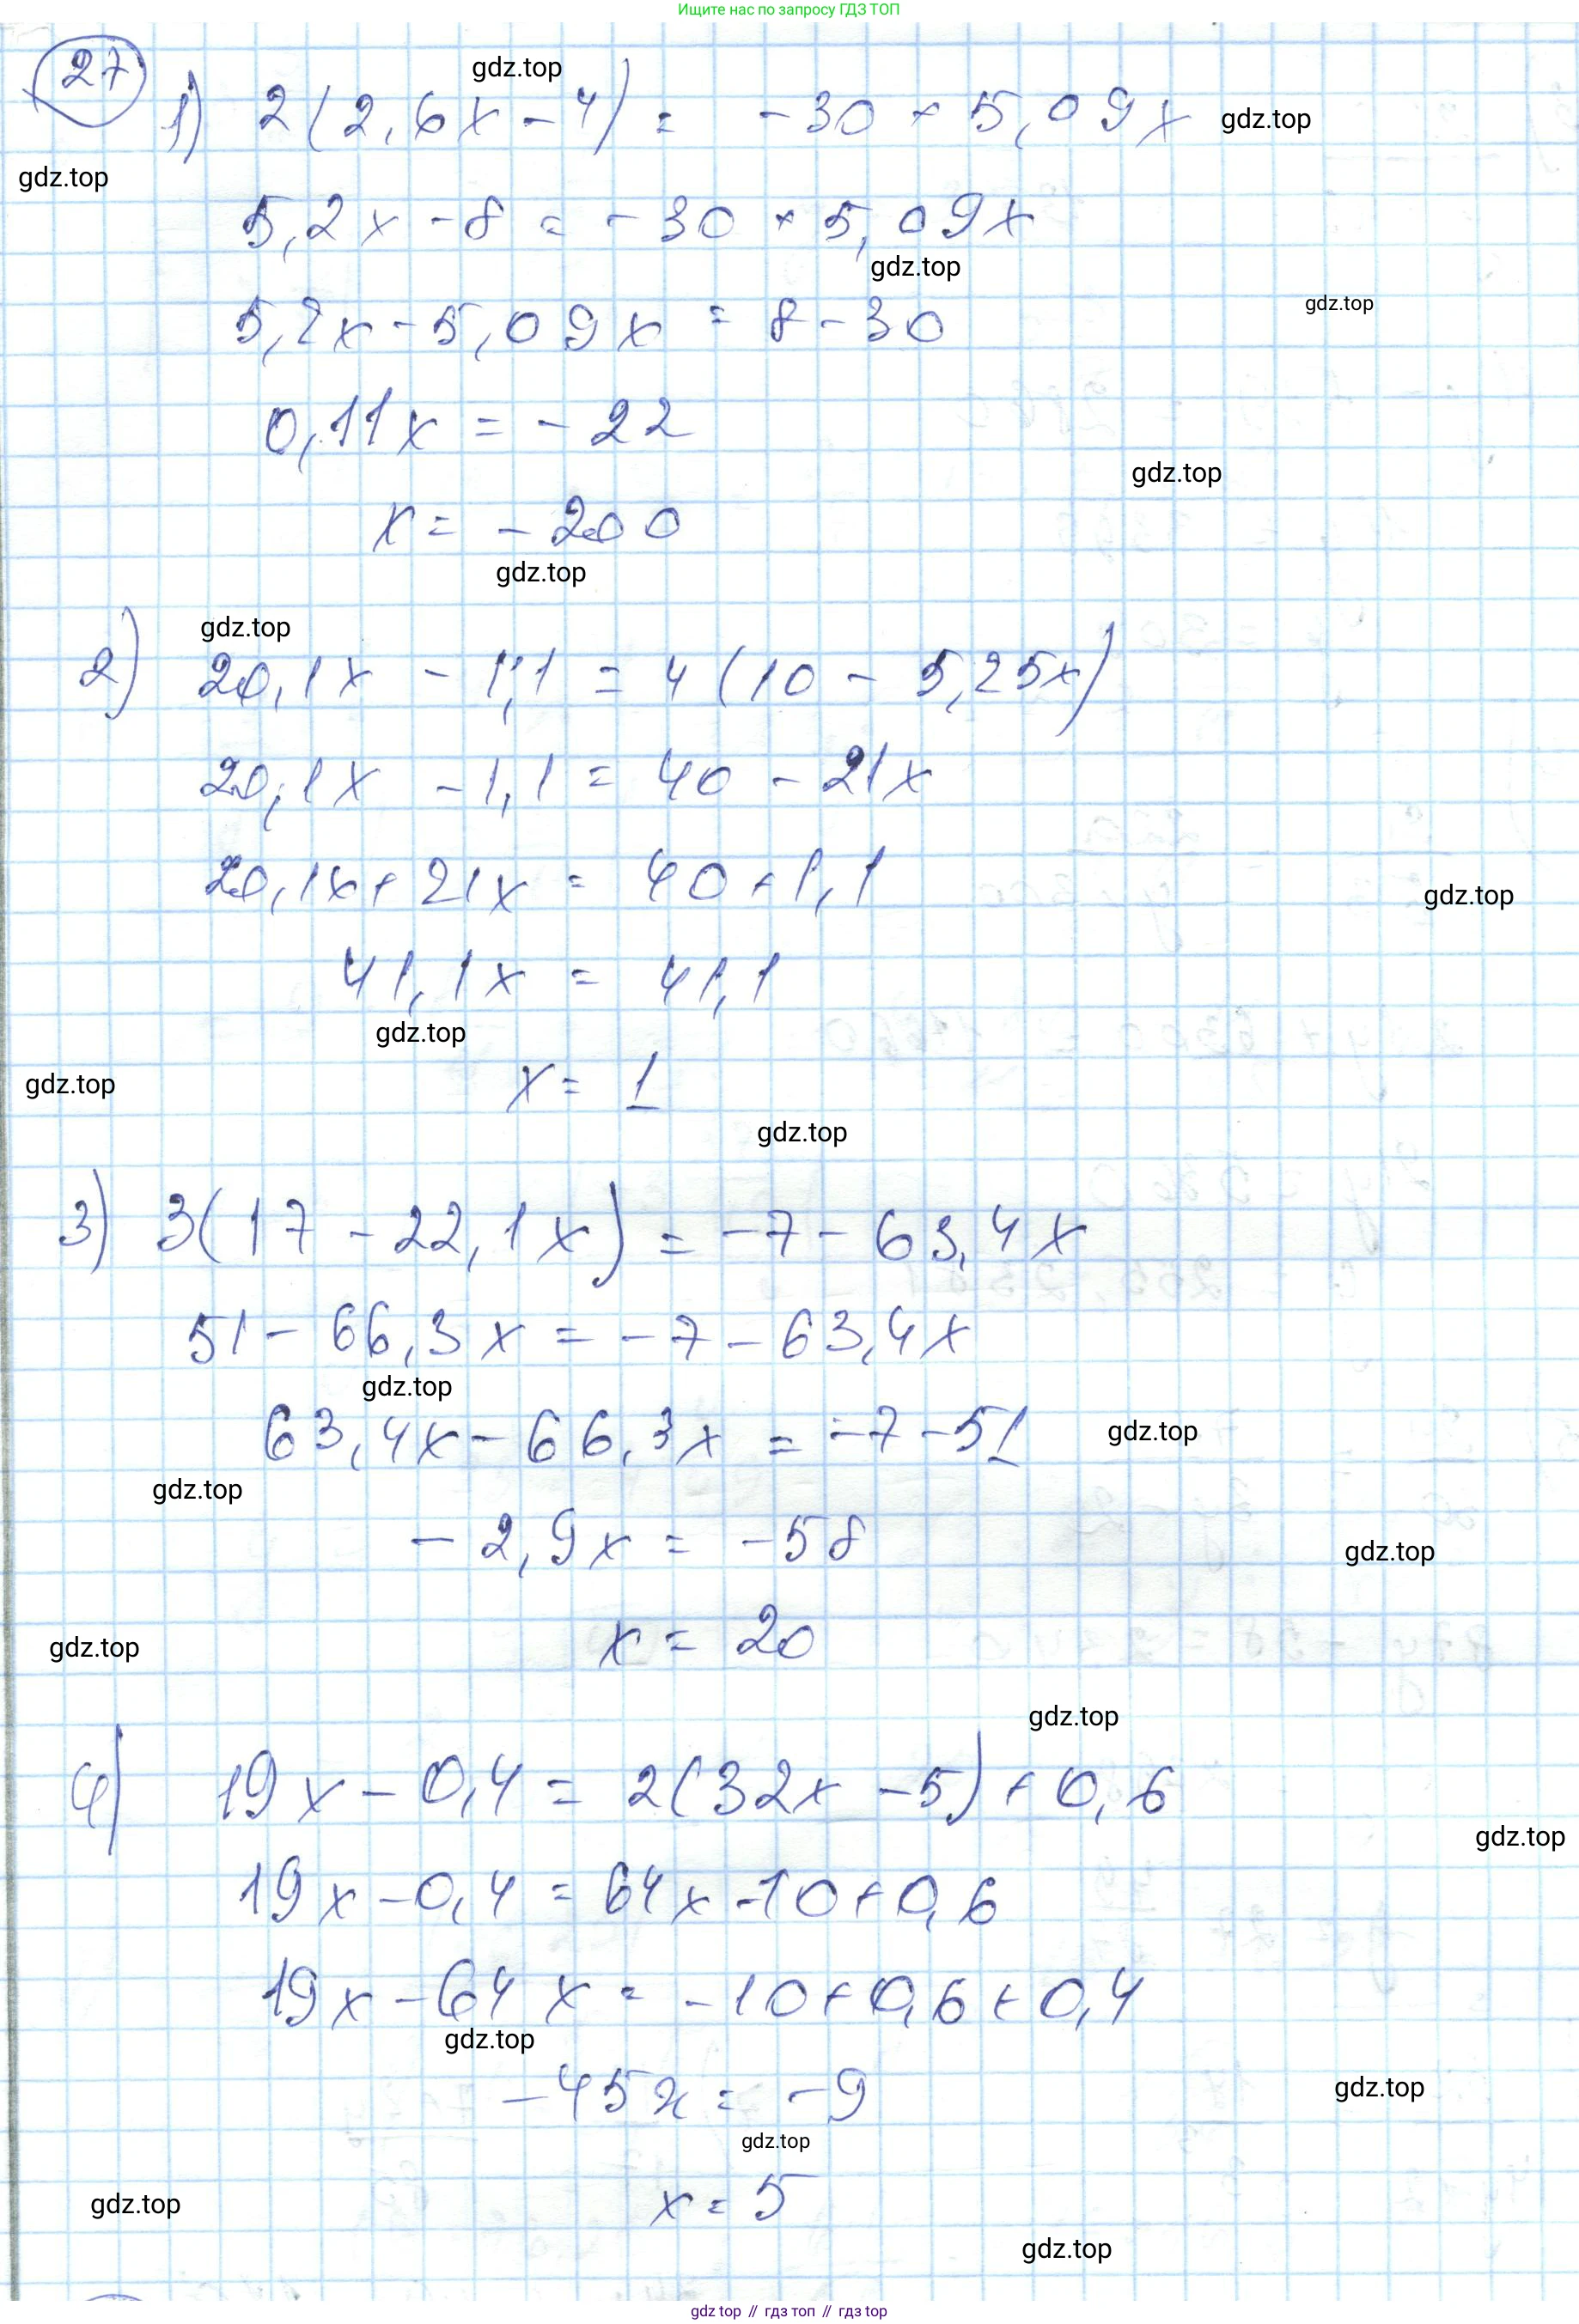 Ищите нас по запросу ГДЗ ТОП
27
gdz.top
1) 2(2,6x - 4) = -30 + 5,09x
gdz.top
gdz.top
5,2x - 8 = -30 + 5,09x
gdz.top
gdz.top
5,2x - 5,09x = 8 - 30
0,11x = -22
gdz.top
x = -200
gdz.top
gdz.top
2) 20,1x - 1,1 = 4(10 - 5,25x)
20,1x - 1,1 = 40 - 21x
20,1x + 21x = 40 + 1,1
gdz.top
41,1x = 41,1
gdz.top
x = 1
gdz.top
gdz.top
3) 3(17 - 22,1x) = -7 - 63,4x
51 - 66,3x = -7 - 63,4x
gdz.top
63,4x - 66,3x = -7 - 51
gdz.top
gdz.top
-2,9x = -58
gdz.top
x = 20
gdz.top
gdz.top
4) 19x - 0,4 = 2(32x - 5) + 0,6
gdz.top
19x - 0,4 = 64x - 10 + 0,6
19x - 64x = -10 + 0,6 + 0,4
gdz.top
-45x = -9
gdz.top
gdz.top
x = 5
gdz.top
gdz.top
gdz top // гдз топ // гдз top